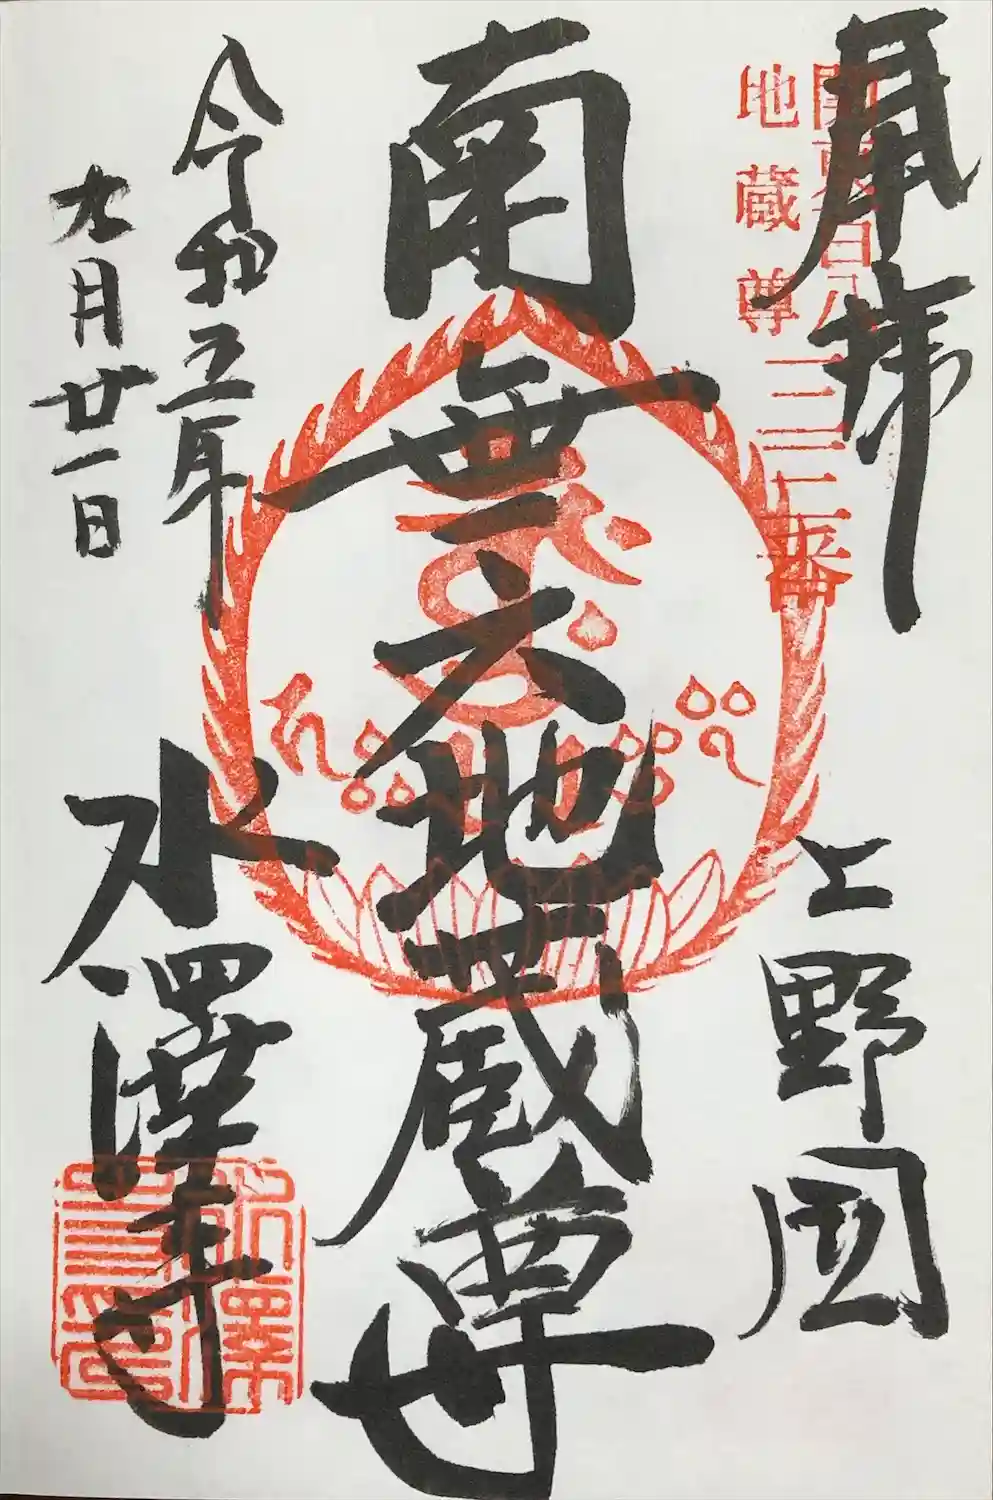 奉拝
関東百八
地蔵尊
上野国
南無六地蔵尊
令和五年
九月廿一日
水澤寺